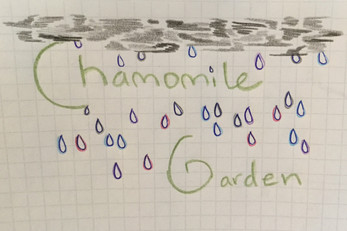 Chamomile
Garden